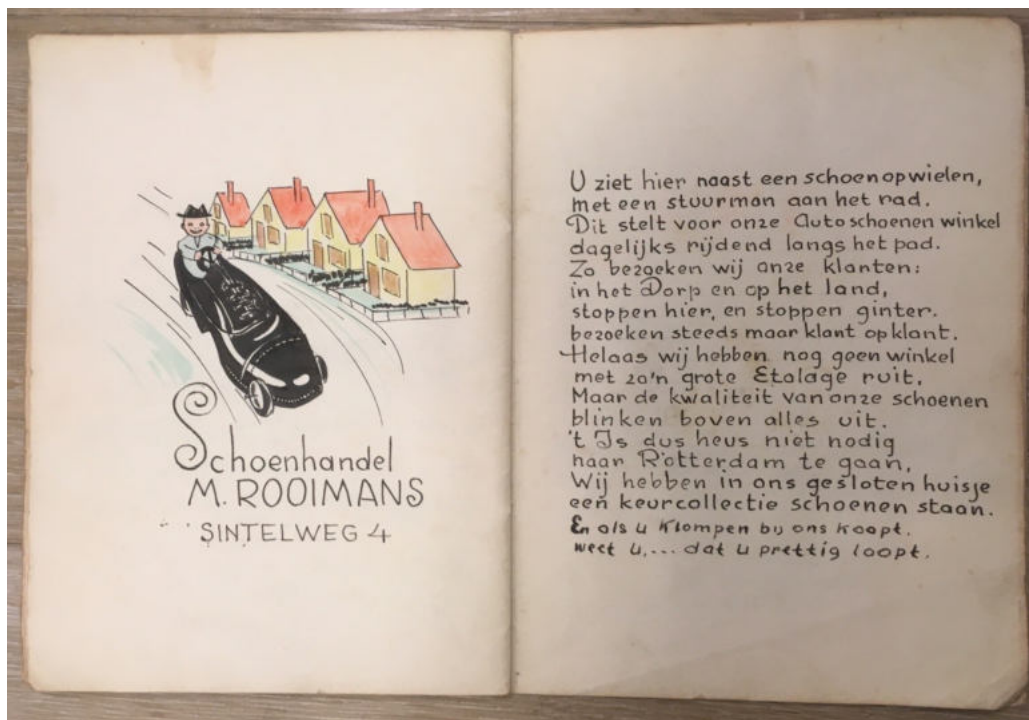 Schoenhandel
M. ROOIMANS
SINTELWEG 4
U ziet hier naast een schoen op wielen,
met een stuurman aan het rad.
Dit stelt voor onze Autoschoenen winkel
dagelijks rijdend langs het pad.
Zo bezoeken wij onze klanten:
in het Dorp en op het land,
stoppen hier, en stoppen ginter.
bezoeken steeds maar klant op klant.
Helaas wij hebben nog geen winkel
met zo'n grote Etalage ruit.
Maar de kwaliteit van onze schoenen
blinken boven alles uit.
't Is dus heus niet nodig
naar Rotterdam te gaan,
Wij hebben in ons gesloten huisje
een keurcollectie schoenen staan.
En als u Klompen bij ons koopt.
weet u,... dat u prettig loopt.